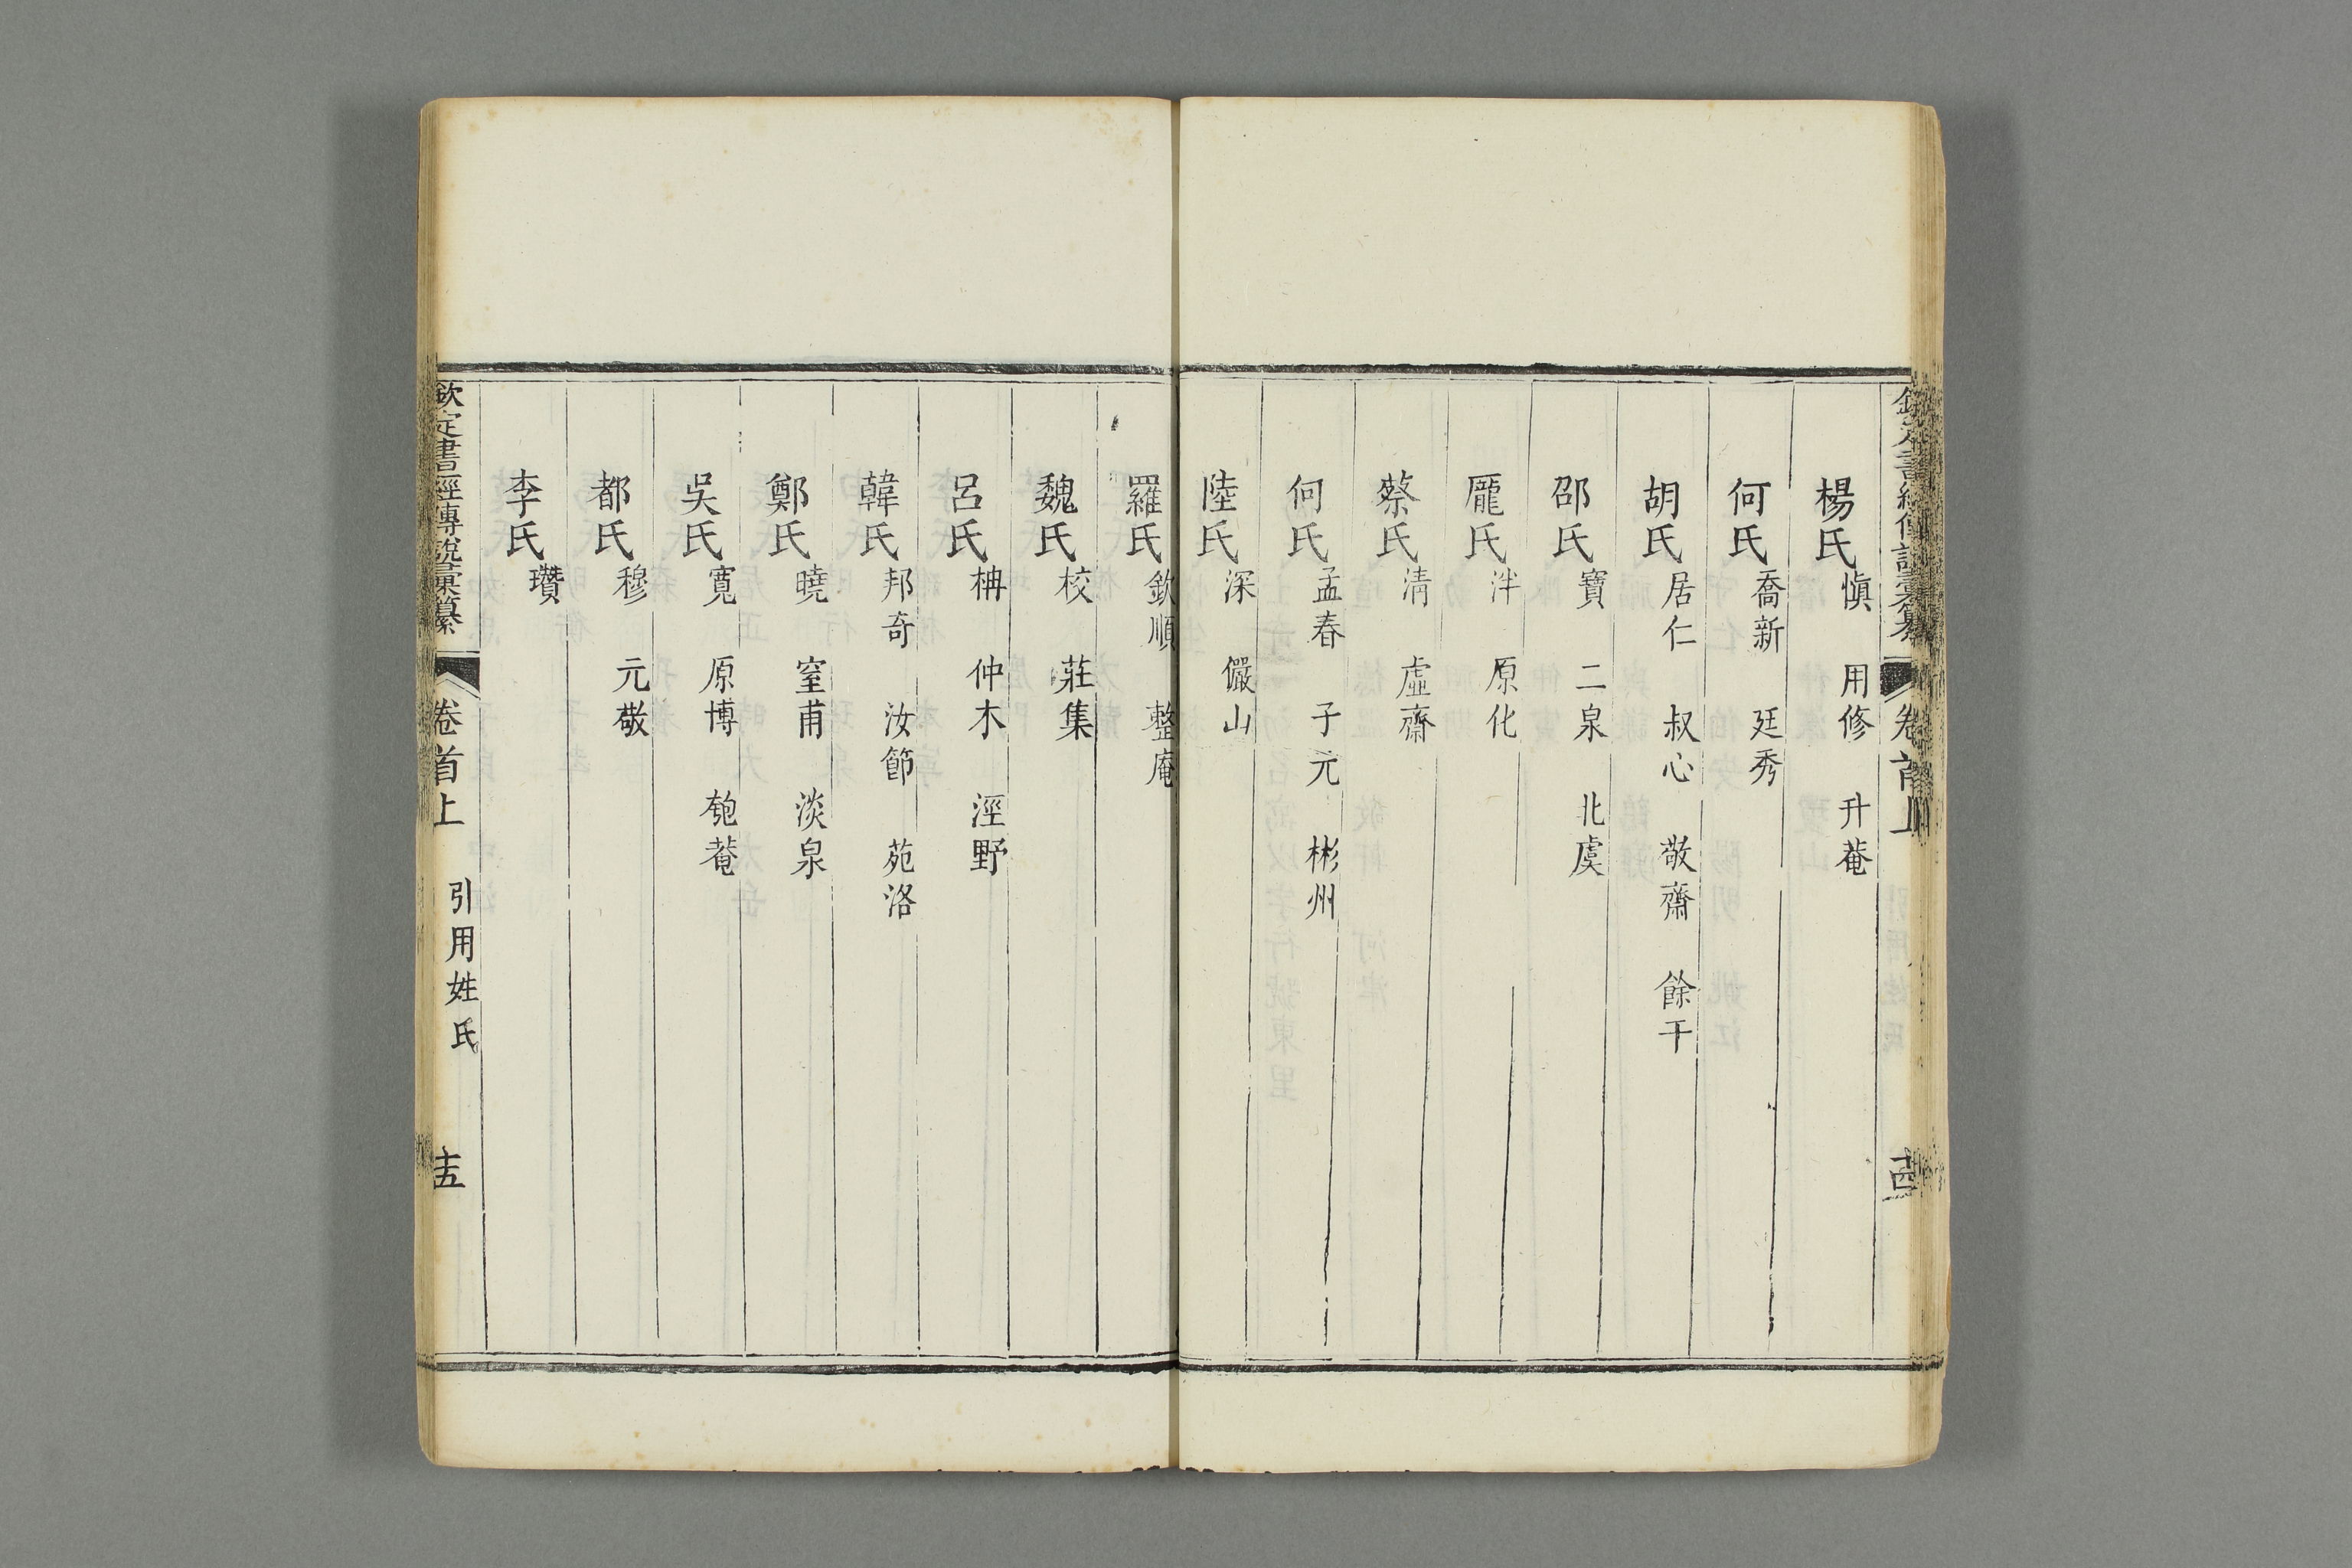 欽定書經傳說彙纂 卷首上 引用姓氏 十四
楊氏 愼 用修 升菴
何氏 喬新 廷秀
胡氏 居仁 叔心 敬齋 餘干
邵氏 寶 二泉 北虞
龎氏 泮 原化
蔡氏 淸 虛齋
何氏 孟春 子元 彬州
陸氏 深 儼山
羅氏 欽順 整庵
魏氏 校 莊集
呂氏 柟 仲木 涇野
韓氏 邦奇 汝節 苑洛
鄭氏 曉 窒甫 淡泉
吳氏 寬 原博 匏菴
都氏 穆 元敬
李氏 瓚
欽定書經傳說彙纂 卷首上 引用姓氏 十五